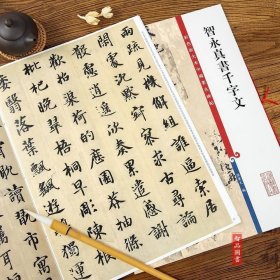 兩疏見機解組誰逼索居
閑處沉默寂寥求古尋論
散慮逍遙欣奏累遣慼謝
歡招渠荷的歷園莽抽條
枇杷晚翠梧桐早凋陳根
委翳落葉飄颻遊鵾獨運
讀翫市寓
耳
彩色放大本中國著名碑帖
智永真書千字文